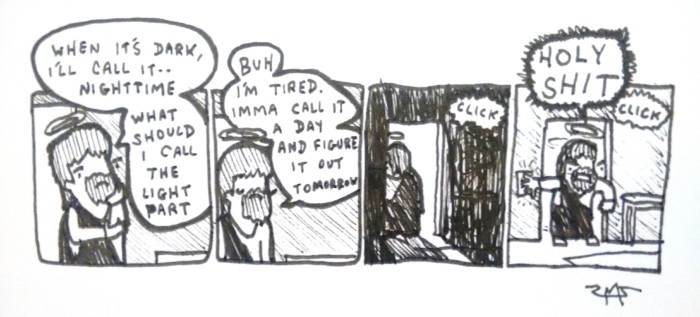 WHEN IT'S DARK,
I'LL CALL IT..
NIGHTTIME
WHAT
SHOULD
I CALL
THE
LIGHT
PART
BUH
I'M TIRED.
IMMA CALL IT
A DAY
AND FIGURE
IT OUT
TOMORROW
CLICK
HOLY
SHIT
CLICK